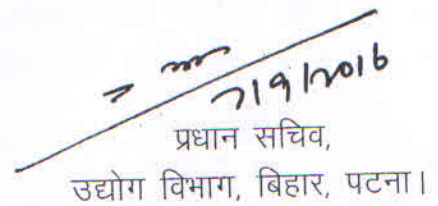 7/9/2016
प्रधान सचिव,
उद्योग विभाग, बिहार, पटना।